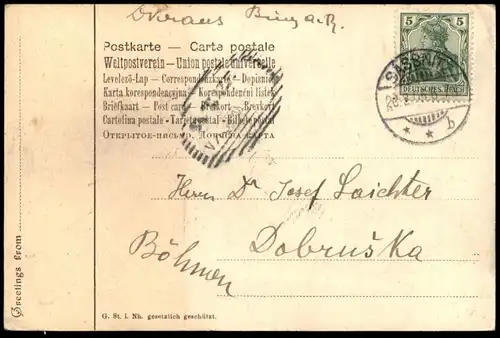 Postkarte – Carte postale
Weltpostverein – Union postale universelle
Levelező-Lap – Correspondenzkarte – Dopisnice
Karta korespondencyjna – Korespondenční lístek
Briefkaart – Post card – Brefkort – Brevkort
Cartolina postale – Tarjeta postal – Bilhete postal
ОТКРЫТОЕ ПИСЬМО.
5 5
DEUTSCHES REICH
SASSNITZ
* * b
Herrn Dr Josef Laichter
Dobruška
Böhmen
Greetings from
G. St. i. Nh. gesetzlich geschützt.